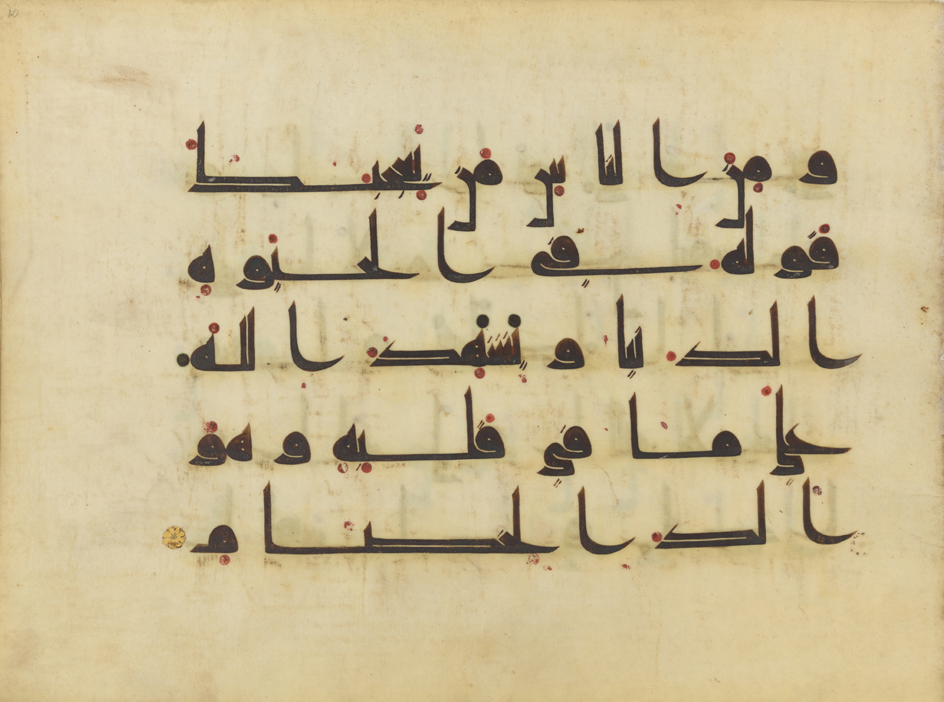 ومن الناس من يعجبك
قوله في الحيوة
الدنيا ويشهد الله
على ما في قلبه وهو
الد الخصام